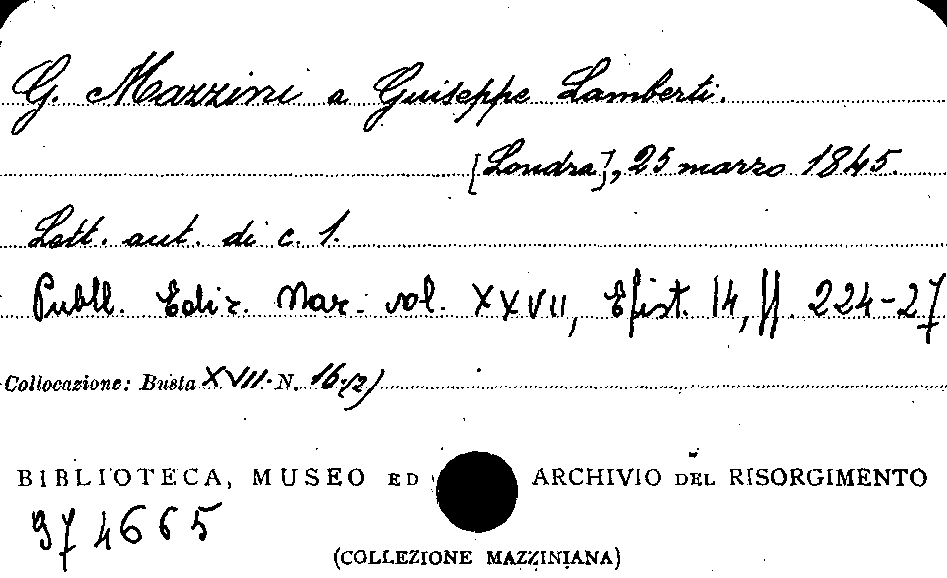 G. Mazzini a Giuseppe Lamberti.
[Londra], 25 marzo 1845.
Lett. aut. di c. 1.
Pubbl. Ediz. Naz. vol. XXVII, Epist. 14, pp. 224-27
Collocazione: Busta XVII. N. 16.(2)
BIBLIOTECA, MUSEO ED ARCHIVIO DEL RISORGIMENTO
974665
(COLLEZIONE MAZZINIANA)